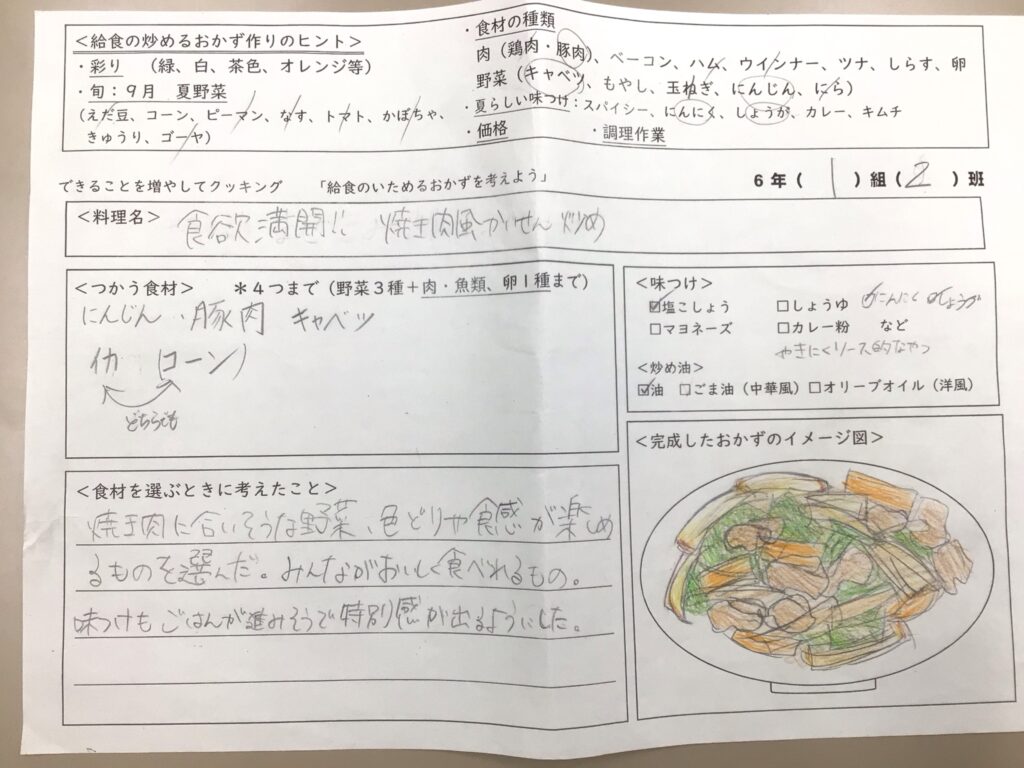 ＜給食の炒めるおかず作りのヒント＞
・彩り　（緑、白、茶色、オレンジ等）
・旬：９月　夏野菜
（えだ豆、コーン、ピーマン、なす、トマト、かぼちゃ、
きゅうり、ゴーヤ）
・食材の種類
肉（鶏肉・豚肉）、ベーコン、ハム、ウインナー、ツナ、しらす、卵
野菜（キャベツ、もやし、玉ねぎ、にんじん、にら）
・夏らしい味つけ：スパイシー、にんにく、しょうが、カレー、キムチ
・価格　　　　　・調理作業
できることを増やしてクッキング　　「給食のいためるおかずを考えよう」
６年（　1　）組（　2　）班
＜料理名＞　食欲満開!!　焼き肉風かいせん炒め
＜つかう食材＞　　＊４つまで（野菜３種＋肉・魚類、卵１種まで）
にんじん、豚肉　キャベツ
イカ　（コーン）
どちらでも
＜味つけ＞
☑塩こしょう　　□しょうゆ　☑にんにく ☑しょうが
□マヨネーズ　　□カレー粉　　など
やきにくソース的なやつ
＜炒め油＞
☑油　□ごま油（中華風）□オリーブオイル（洋風）
＜食材を選ぶときに考えたこと＞
焼き肉に合いそうな野菜、色どりや食感が楽しめ
るものを選んだ。みんながおいしく食べれるもの。
味つけもごはんが進みそうで特別感が出るようにした。
＜完成したおかずのイメージ図＞